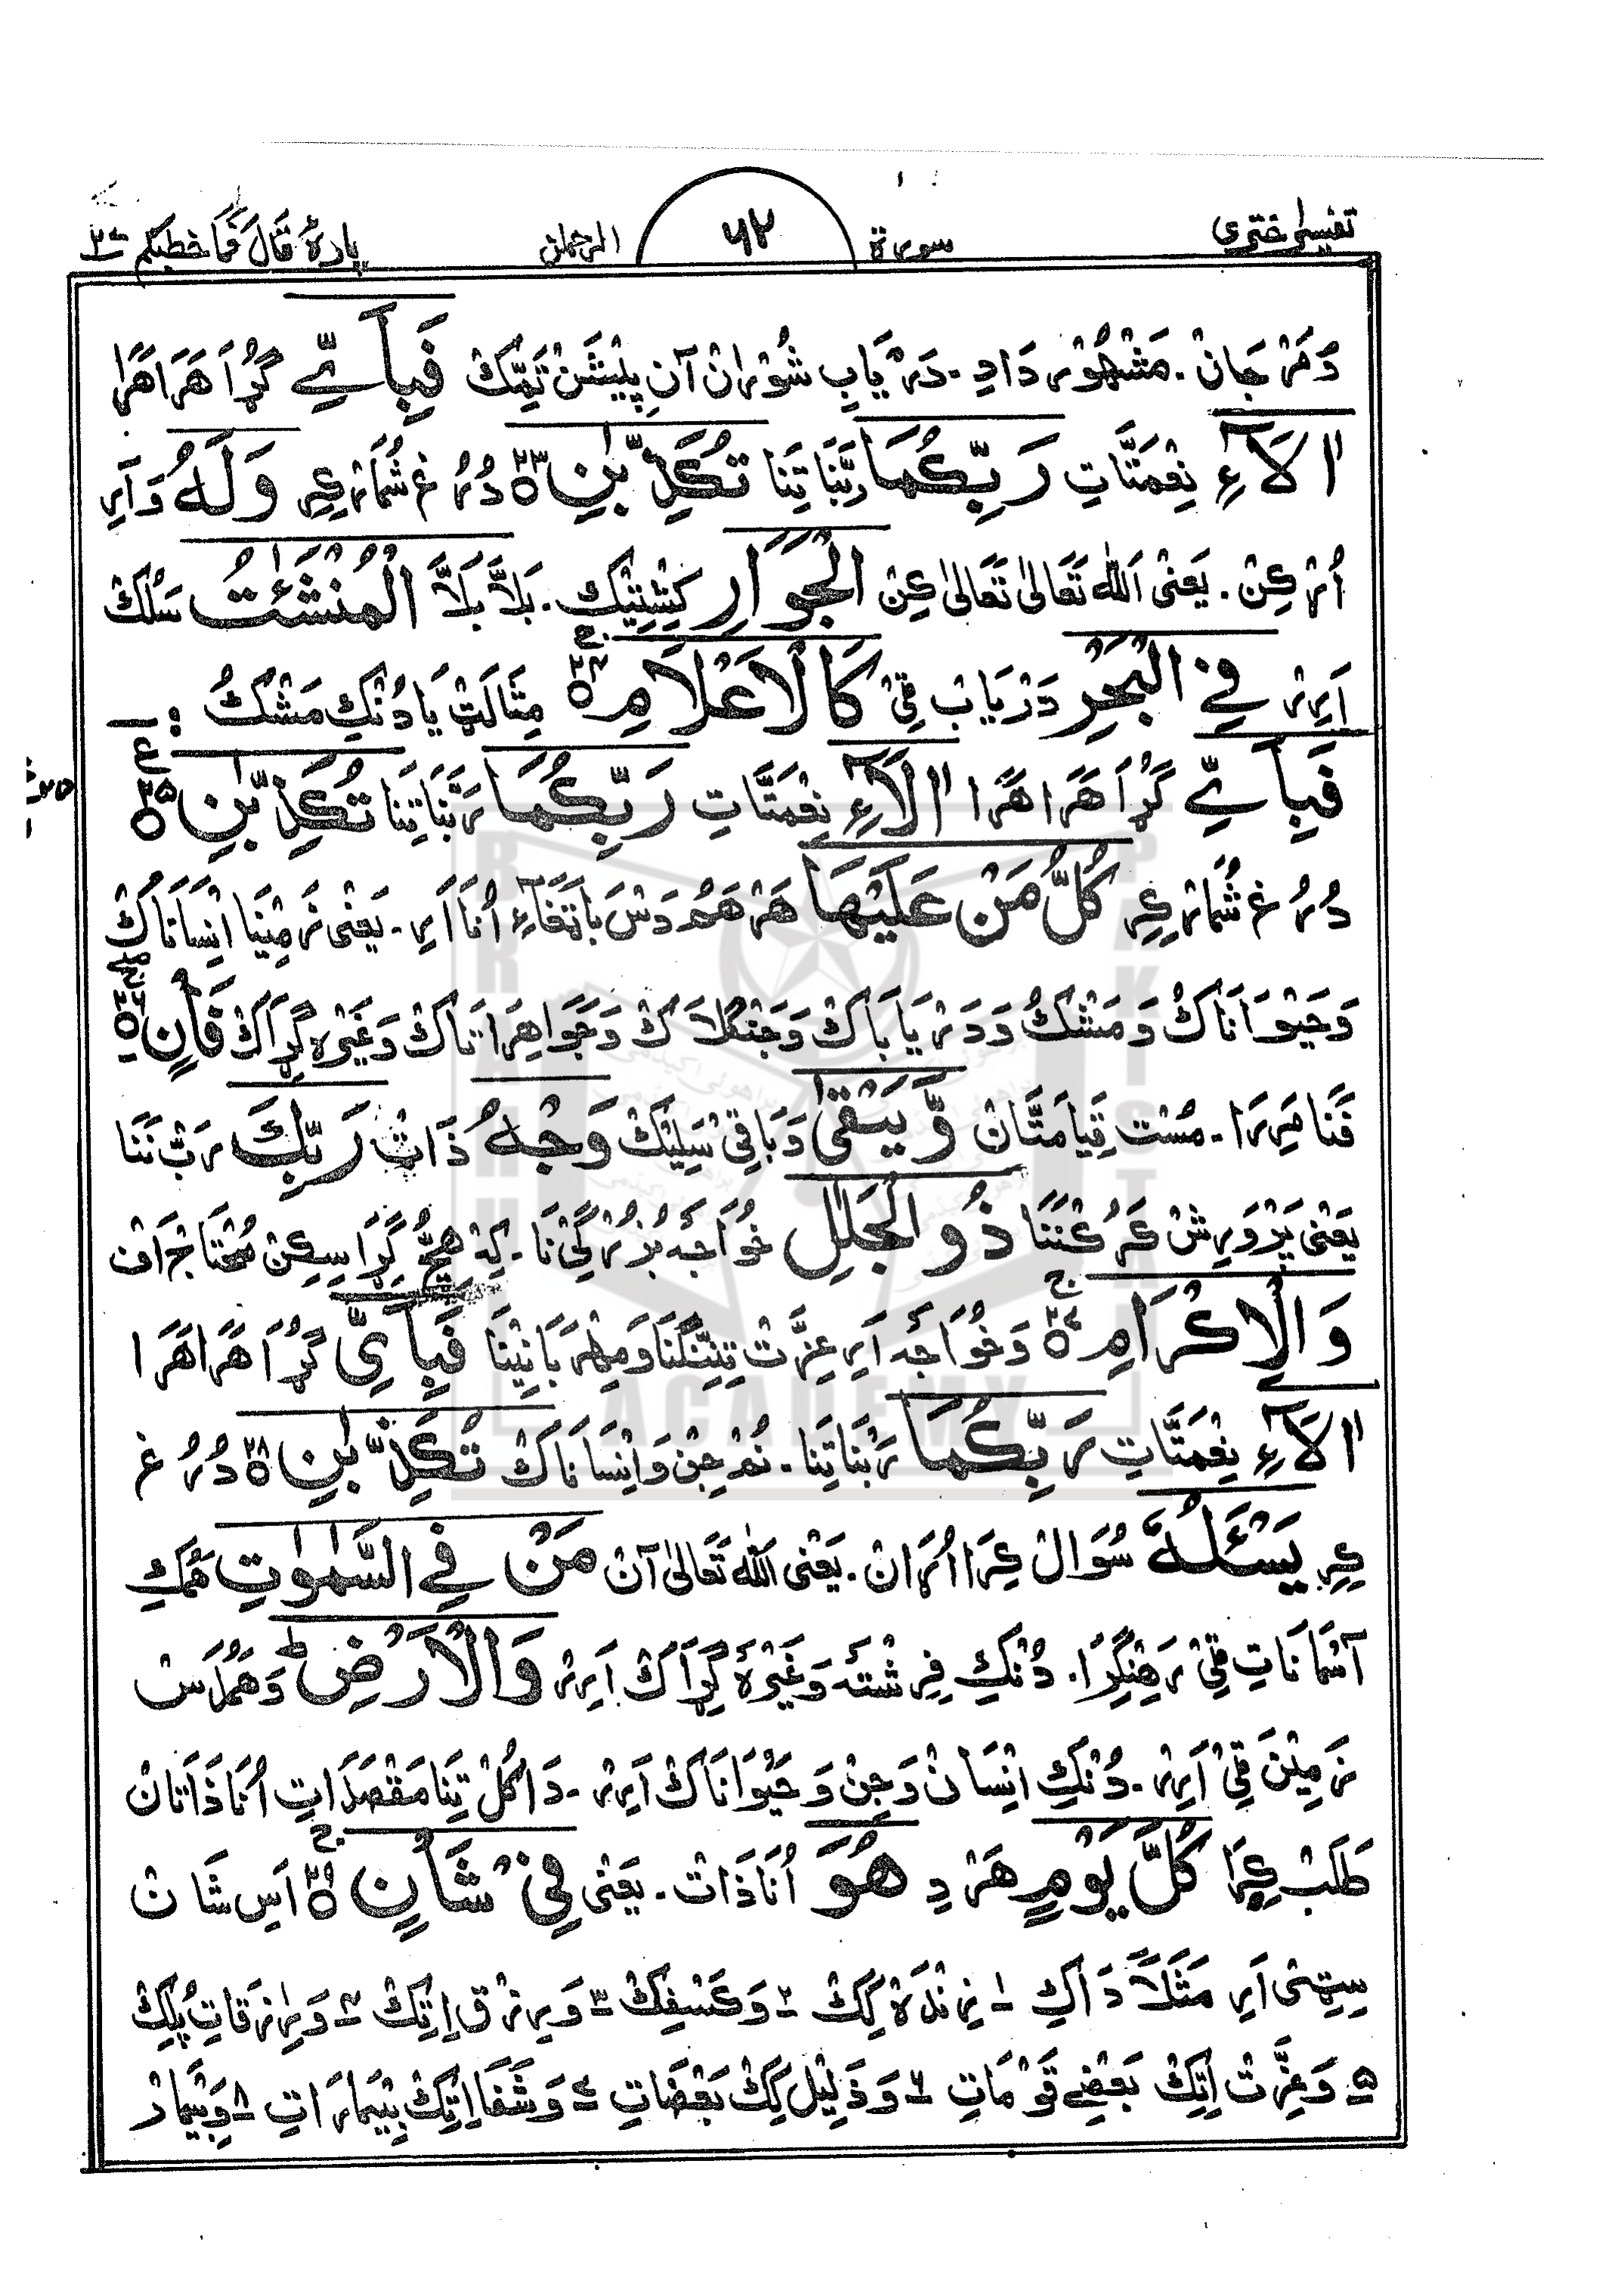 تفسیر اختری سورة ٦٢ الرحمٰن پارہٴ قَالَ فَمَا خطبکم ٢٧
وَمَرْجَانْ۔ مَشْہُوْر دَادِ۔ دَرْیَابِ شُوْرَان آنِ پِیْشَنْ تَمِّکْ فَبِاَيِّ گُڑَا هَرَا هَرَا
اٰلَآءِ نِعْمَتَّاتِ رَبِّكُمَا رَبَّنَا تِنَا تُكَذِّبٰنِ ٢٣ دُرُغ شُمَارْ عِرِ وَلَهُ وَ اَرِ
اُرْ کِنْ۔ یَعْنٰی اَللّٰه تَعَالٰی تَعَالٰی کِنْ الْجَوَارِ کِشْتِیْکِ۔ بَلَّا بَلَّا الْمُنْشَئٰتُ سَلُکْ
اَرِرْ فِي الْبَحْرِ دَرْیَابْ قِیْ كَالْاَعْلَامِ ٢٤ مِثَالَتْ یَادُنْکِ مَشْکُ :۔
فَبِاَيِّ گُڑَا هَرَا هَرَا اٰلَآءِ نِعْمَتَّاتِ رَبِّكُمَا رَبَّنَا تِنَا تُكَذِّبٰنِ ٢٥
دُرُغ شُمَارْ عِرِ كُلُّ مَنْ عَلَيْهَا هَرْ هَمُو دَسْ بَاتَغَاءِ اُنَا اَرِ۔ یَعْنٰی زَمِیْنَا اِنْسَانَاکْ
وَحَیْوَانَاکْ وَ مَشْکُ وَ دَرْیَابَاکْ وَ جَنْگَلَاکْ وَ جَوَاهِرَاتَاکْ وَ غَیْرَہ گِڑَاکْ فَانٍ ٢٦
فَنَا مَرِرَا۔ مُسْت قِیَامَتَّان وَّيَبْقٰى وَ بَاقِیْ سَلِیْکْ وَجْهُ ذَاتْ رَبِّكَ رَبّ نَنَا
یَعْنٰی پَرْوَرِشْ کَرُکْنَنَا ذُو الْجَلٰلِ خُوَاجَہ بُزُرْگِیْ نَا۔ کِہ هِچُّ گِڑَا سِکِنْ مُحْتَاجْ اَفْ
وَالْاِكْرَامِ ٢٧ وَ خُوَاجَہ اَرِ عِزَّتْ تِنِنْگْنَا وَ مِهْرَبَانِیْنَا فَبِاَيِّ گُڑَا هَرَا هَرَا
اٰلَآءِ نِعْمَتَّاتِ رَبِّكُمَا رَبَّنَا تِنَا۔ نُمْ جِنْ وَ اِنْسَانَاکْ تُكَذِّبٰنِ ٢٨ دُرُغ
عِرِ يَسْئَلُهٗ سُوَالْ عِرَا اُرَانْ۔ یَعْنٰی اَللّٰه تَعَالٰی آنْ مَنْ فِي السَّمٰوٰتِ هَمُکِ
آسْمَانَاتِ قِیْ رَهِنْگِرَا۔ دُنْکِ فِرِشْتَہ وَ غَیْرَہ گِڑَاکْ اَرِرْ وَالْاَرْضِ وَ هَمُو دَسْ
زَمِیْنَ قِیْ اَرِرْ۔ دُنْکِ اِنْسَانْ وَ جِنْ وَ حَیْوَانَاکْ اَرِرْ۔ دَا کُلْ تِنَا مَقْصَدَاتِ اُنَا ذَاتَانْ
طَلَبْ عِرَا كُلَّ يَوْمٍ هَرْ دِ هُوَ اُنَا ذَاتْ۔ یَعْنٰی فِيْ شَاْنٍ ٢٩ اَسِ شَانْ
سِتِیْ اَرِ مَثَلًا دَاکِ ١ زِنْدَہ کِکْ ٢ وَ کَسْفِکْ ٣ وَ رِزْق اِتِکْ ٤ وَ رِزْقَاتِ پُلِکْ
٥ وَ عِزَّتْ اِتِکْ بَعْضِے قَوْمَاتِ ٦ وَ ذَلِیْل کِکْ بَعْضَاتِ ٧ وَ شَفَا اِتِکْ بِیْمَارَاتِ ٨ وَ بِیْمَارْ